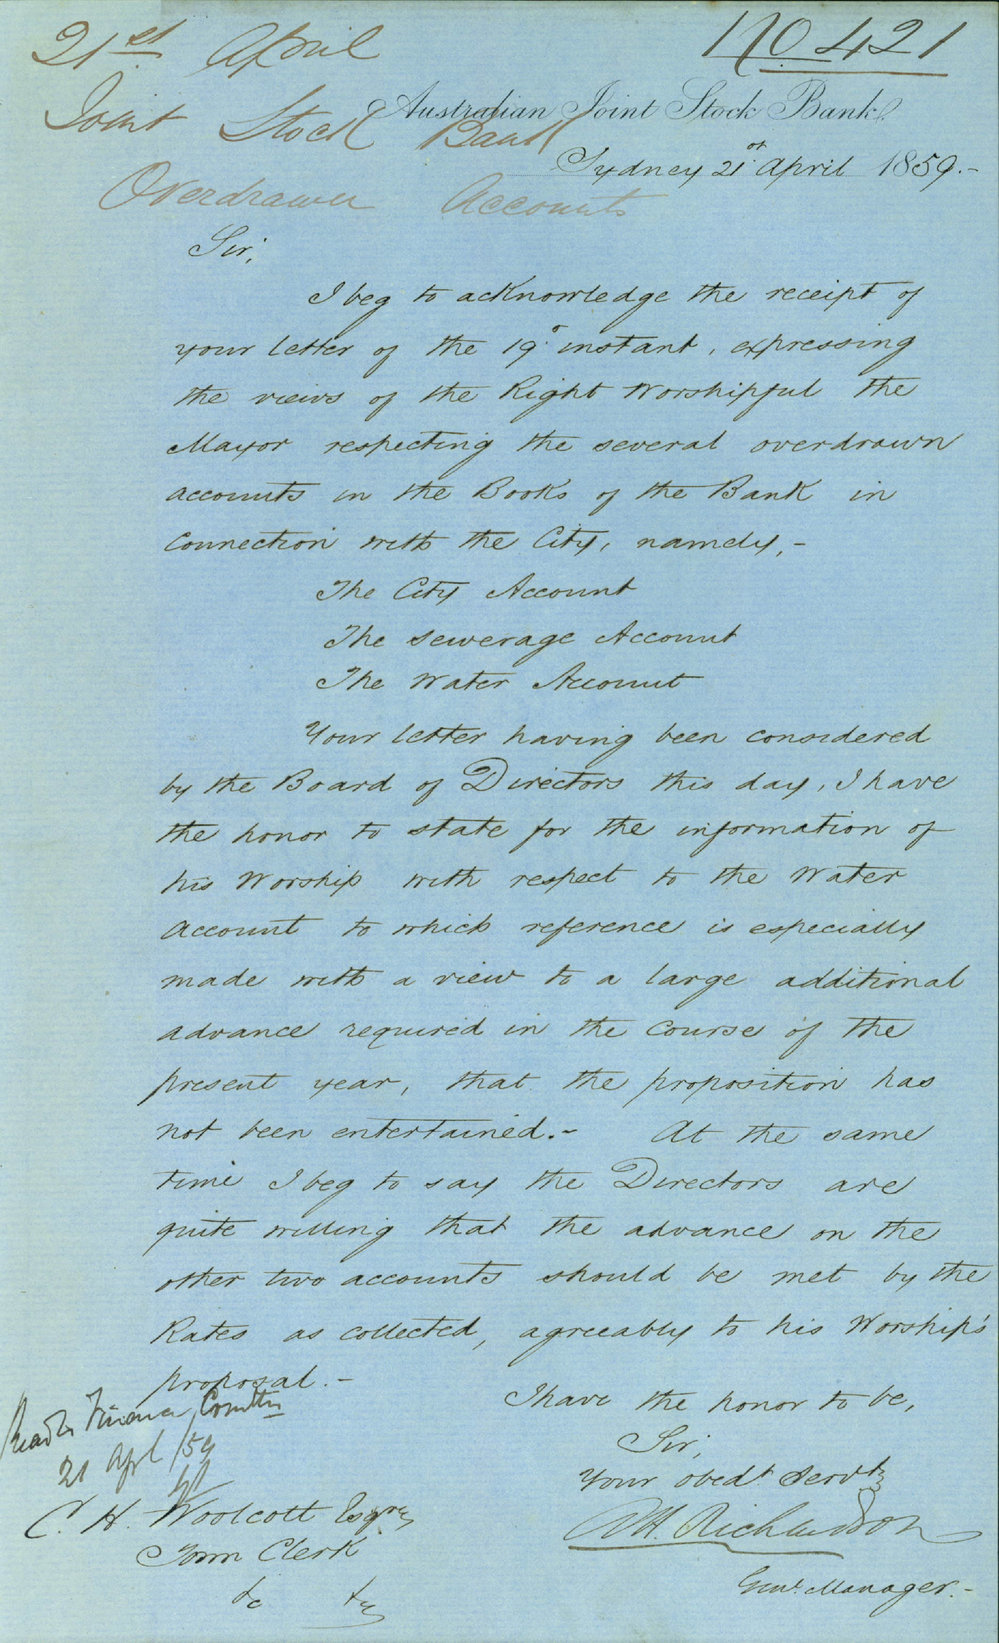 21st April
No 421
Joint Stock Bank
Australian Joint Stock Bank,
Sydney 21st April 1859.-
Overdrawn Accounts
Sir,
I beg to acknowledge the receipt of
your letter of the 19o instant, expressing
the views of the Right Worshipful the
Mayor respecting the several overdrawn
accounts in the Books of the Bank in
connection with the City, namely,-
The City Account
The Sewerage Account
The Water Account
Your letter having been considered
by the Board of Directors this day, I have
the honor to state for the information of
his Worship with respect to the Water
Account to which reference is especially
made with a view to a large additional
advance required in the course of the
present year, that the proposition has
not been entertained.- At the same
time I beg to say the Directors are
quite willing that the advance on the
other two accounts should be met by the
Rates as collected, agreeably to his Worship's
proposal.-
I have the honor to be,
Sir,
Your obedt Servt
Richardson
Genl Manager.-
Finance Comttee
21 Apl /59
C. H. Woolcott Esqre
Town Clerk
&c &c